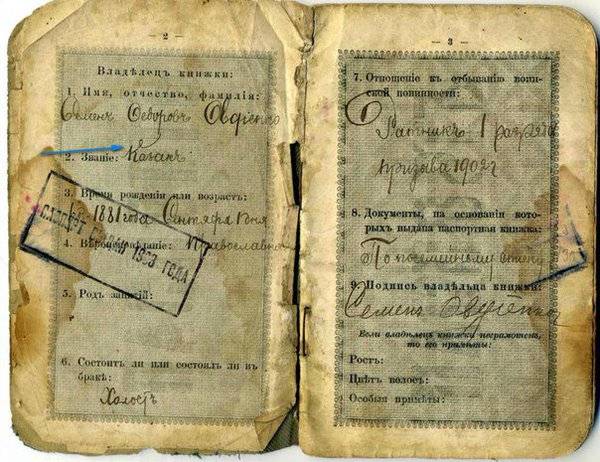 — 2 —
Владѣлецъ книжки:
1. Имя, отчество, фамилія:
Семенъ Федоровъ Овдіенко
2. Званіе: Казакъ
3. Время рожденія или возрастъ:
1881 года Сентября дня
4. Вѣроисповѣданіе: Православное
ПАСПОРТ ГОДА
5. Родъ занятій:
6. Состоитъ ли или состоялъ ли въ
бракѣ:
Холостъ
— 3 —
7. Отношеніе къ отбыванію воин-
ской повинности:
Ратникъ 1 разряда
призыва 1902 г
8. Документы, на основаніи кото-
рыхъ выдана паспортная книжка:
По посемейному списку
9. Подпись владѣльца книжки:
Семенъ Овдіенко
Если владѣлецъ книжки неграмотенъ,
то его примѣты:
Ростъ:
Цвѣтъ волосъ:
Особыя примѣты: